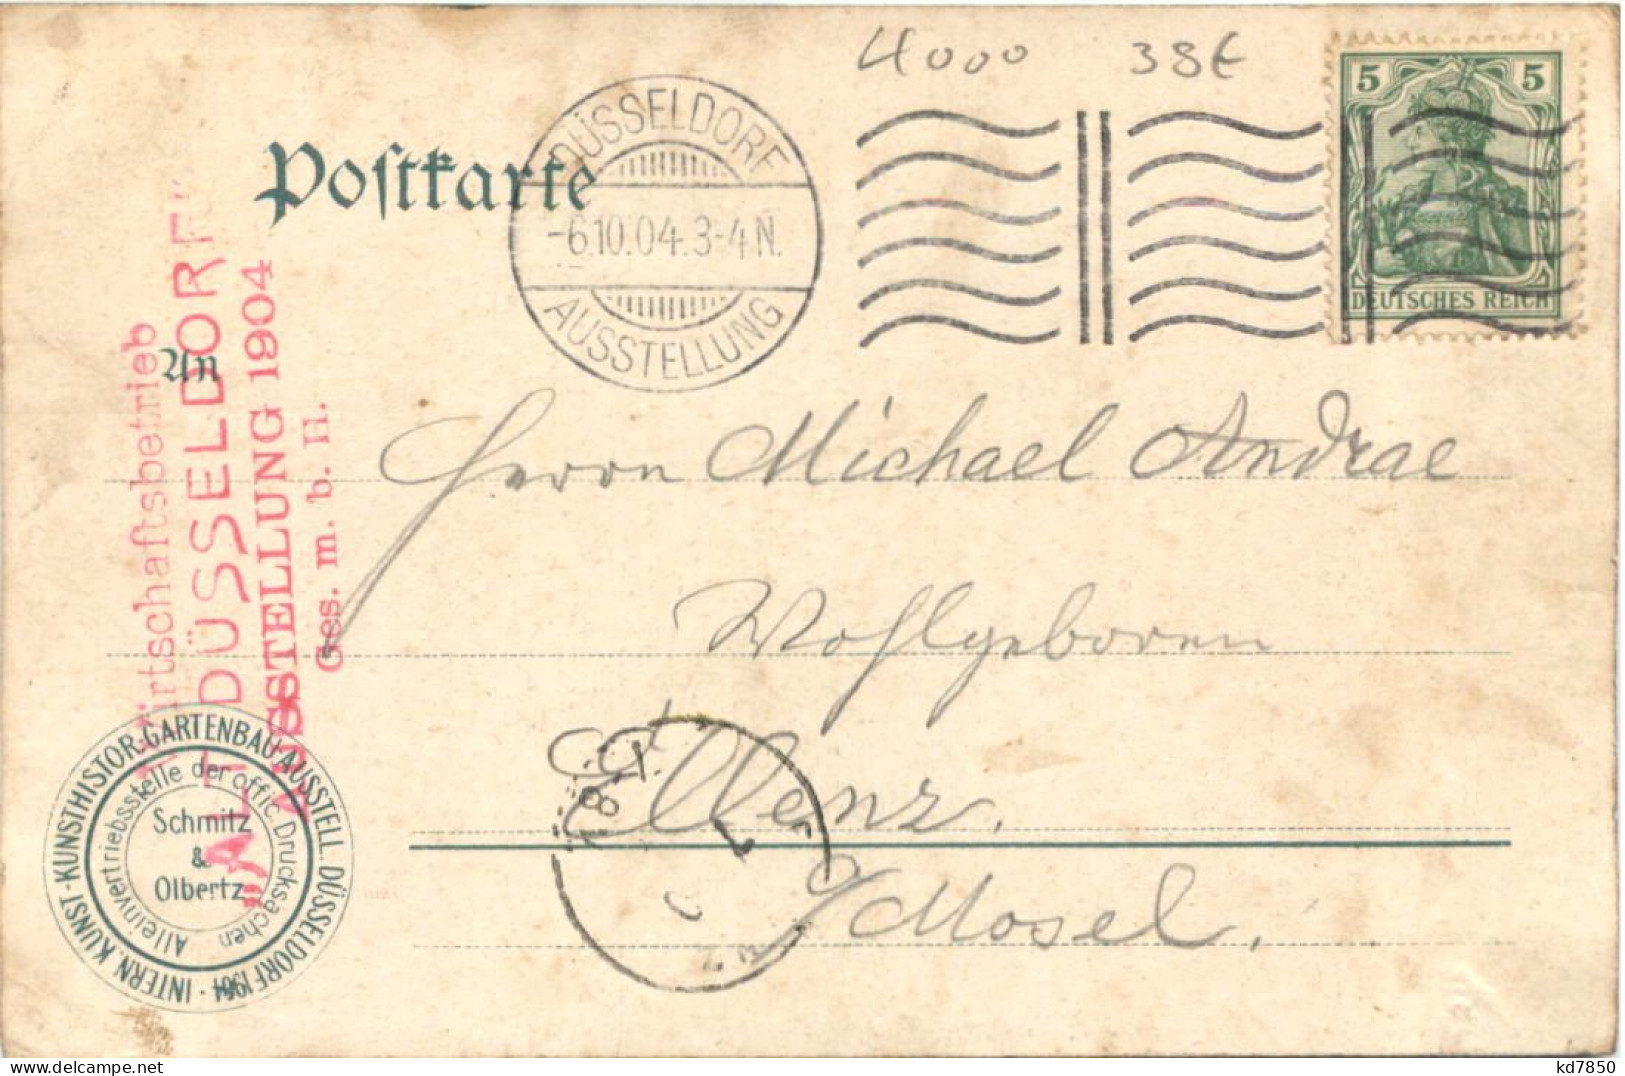 4000 38€
5 5
DEUTSCHES REICH
DÜSSELDORF
-6.10.04.3-4N.
AUSSTELLUNG
Postkarte
An
Wirtschaftsbetrieb
"ALT DÜSSELDORF"
AUSSTELLUNG 1904
Ges. m. b. H.
Herrn Michael Andrae
Wohlgeboren
Ellenz.
a/Mosel.
INTERN. KUNST-KUNSTHISTOR.-GARTENBAU-AUSSTELL. DÜSSELDORF 1904
Alleinvertriebsstelle der offic. Drucksachen
Schmitz
&
Olbertz
delcampe.net
kd7850